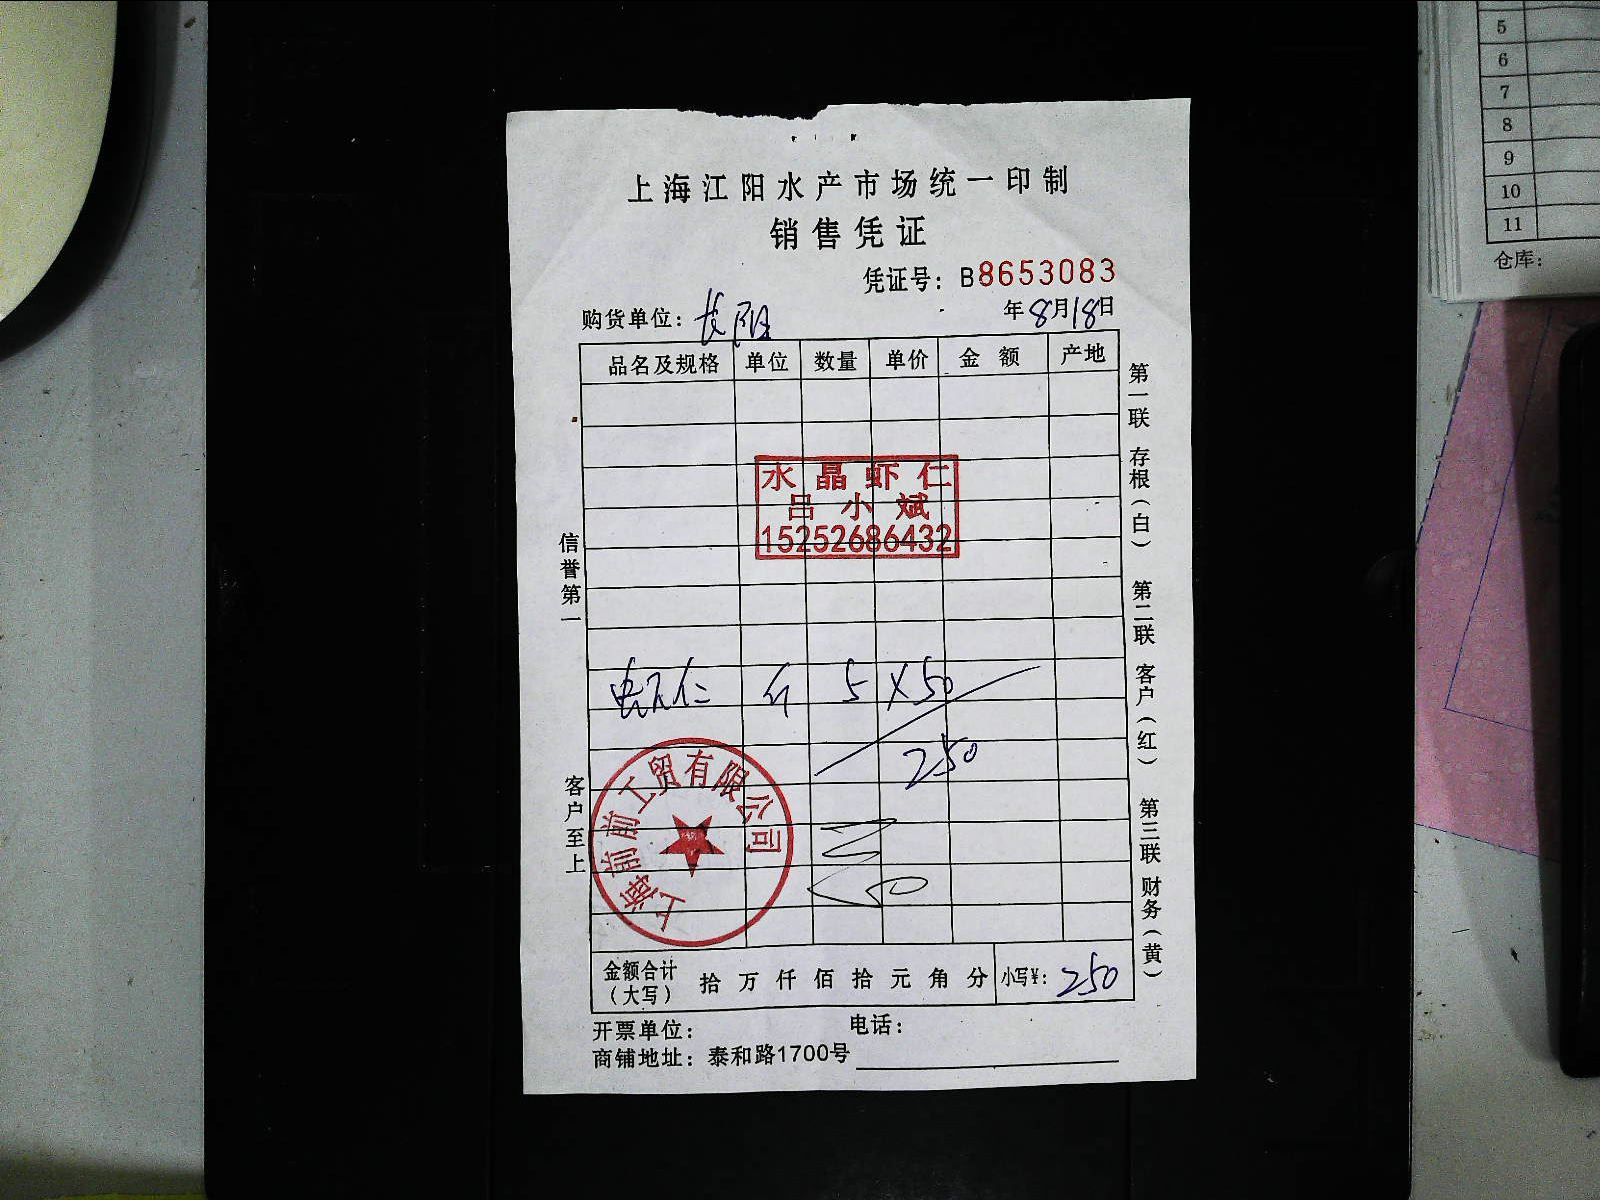 上海江阳水产市场统一印制
销售凭证
凭证号：B8653083
购货单位：长阳 年8月18日
品名及规格 单位 数量 单价 金额 产地
水晶虾仁
吕小斌
15252686432
虾仁 斤 5 X 50
250
50
上海前前工贸有限公司
金额合计（大写） 拾 万 仟 佰 拾 元 角 分 小写¥：250
开票单位： 电话：
商铺地址：泰和路1700号
信誉第一
客户至上
第一联 存根（白） 第二联 客户（红） 第三联 财务（黄）
5
6
7
8
9
10
11
仓库：